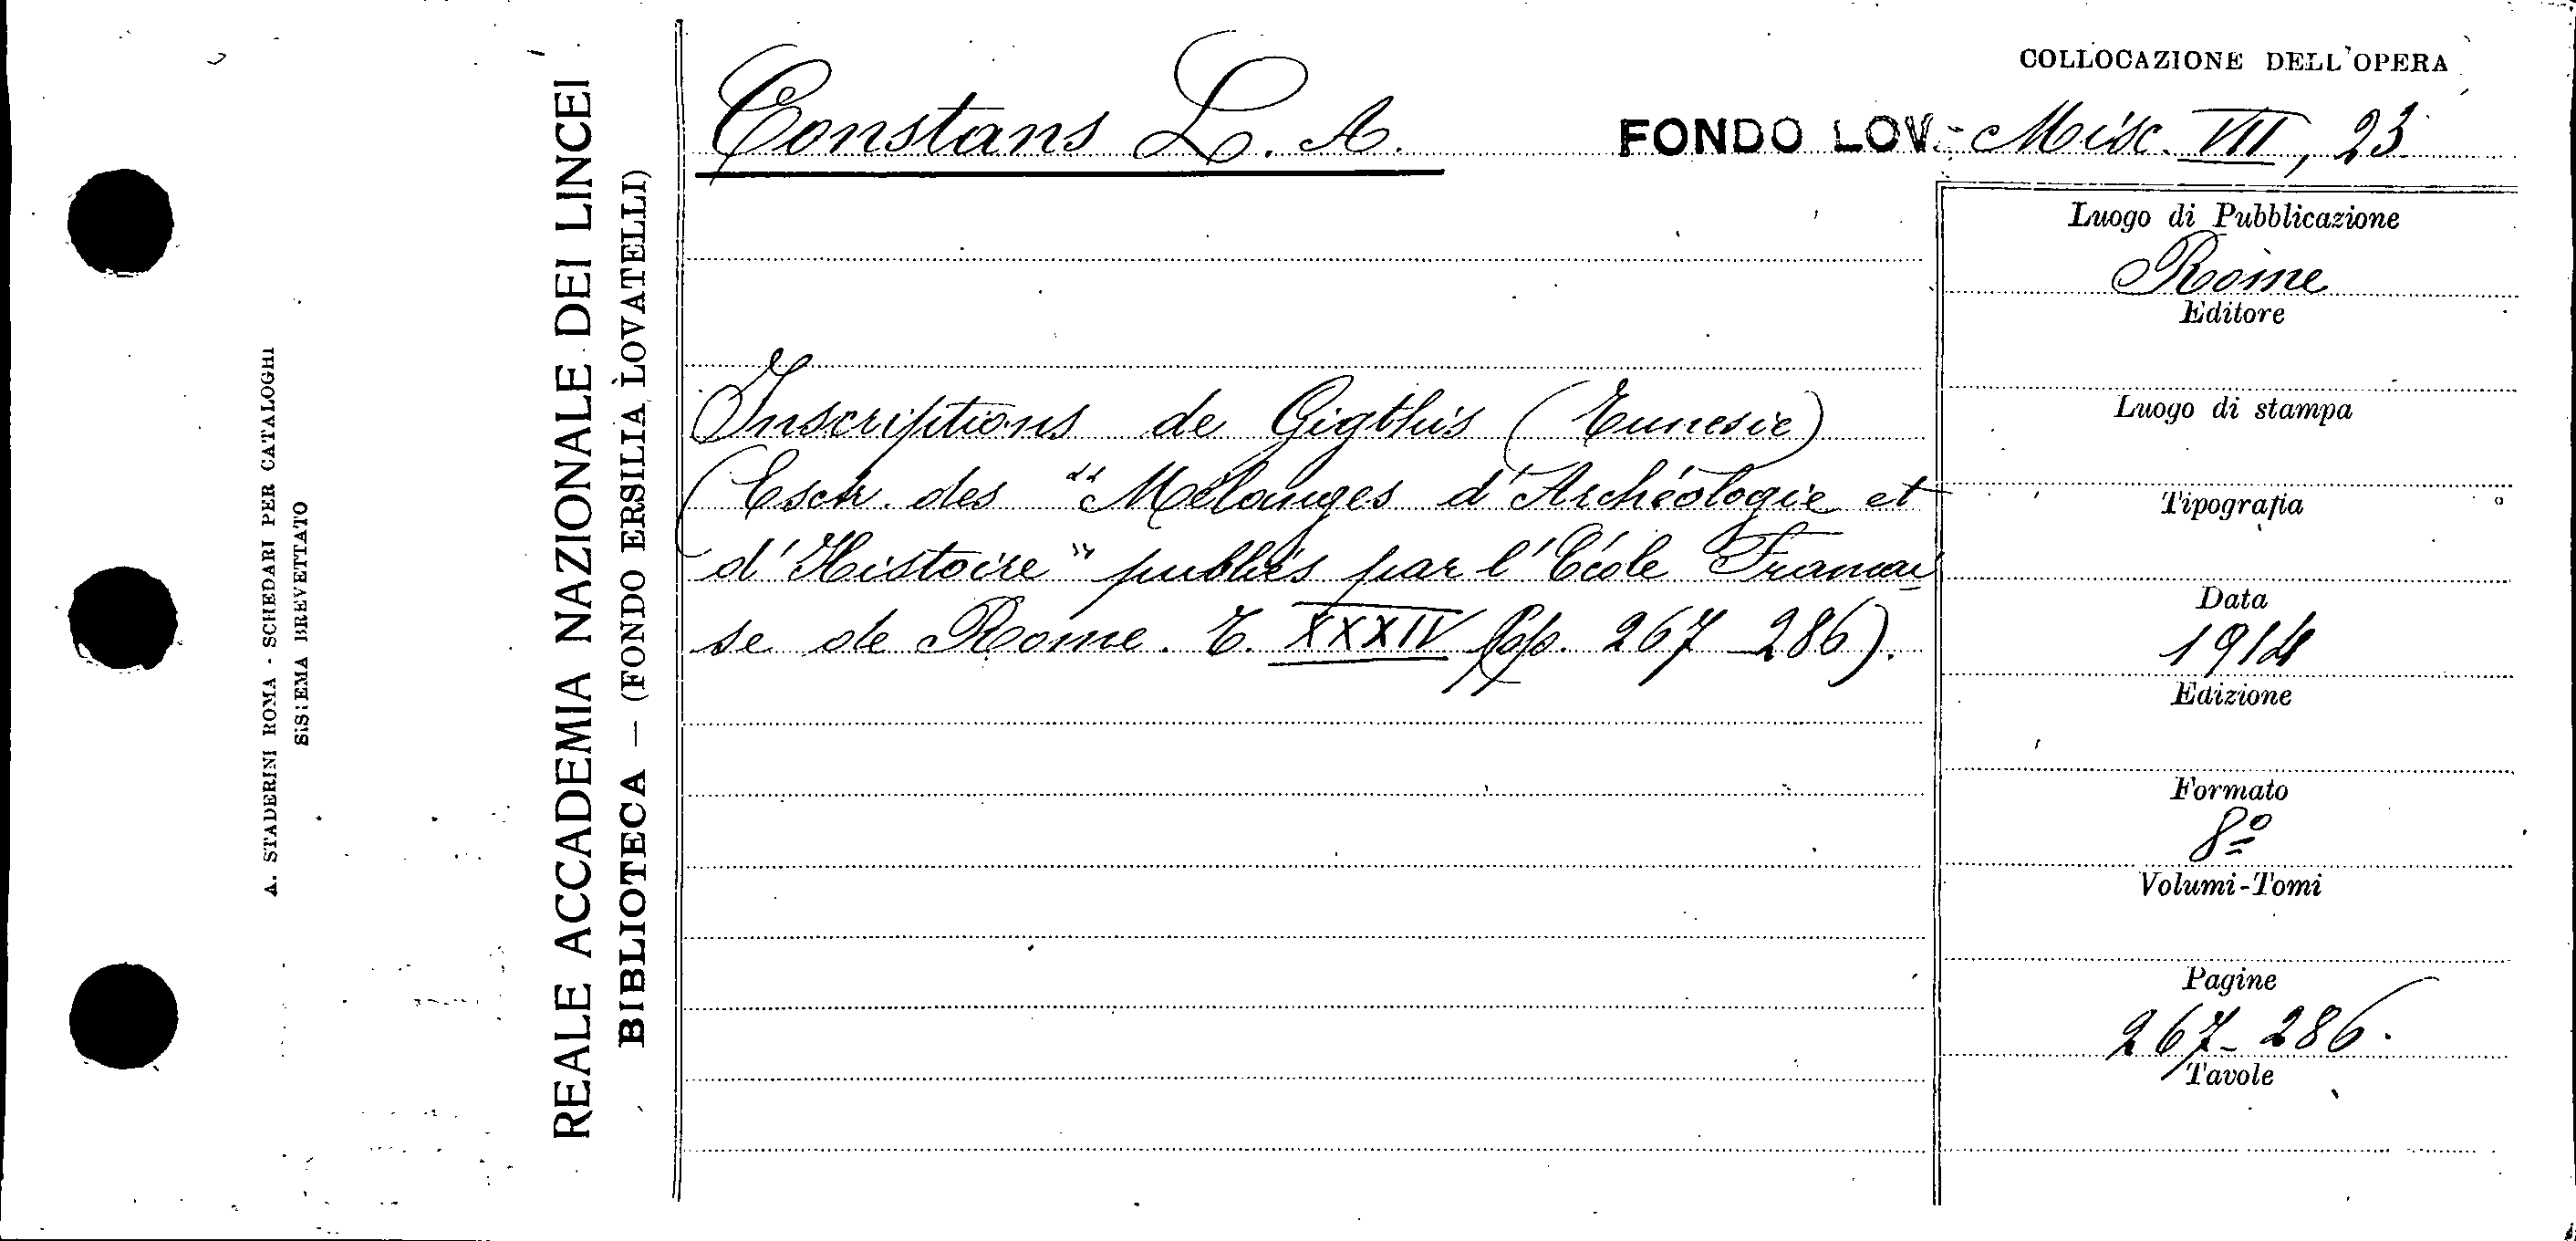 A. STADERINI ROMA - SCHEDARI PER CATALOGHI
SISTEMA BREVETTATO
REALE ACCADEMIA NAZIONALE DEI LINCEI
BIBLIOTECA — (FONDO ERSILIA LOVATELLI)
COLLOCAZIONE DELL'OPERA
Constans L. A.
FONDO LOV. Misc. VII, 23
Inscriptions de Gigthis (Tunesie)
(Estr. des "Mélanges d'Archéologie et
d'Histoire" publiés par l'École Françai
se de Rome. T. XXXIV (pp. 267-286).
Luogo di Pubblicazione
Rome
Editore
Luogo di stampa
Tipografia
Data
1914
Edizione
Formato
8º
Volumi-Tomi
Pagine
267-286.
Tavole